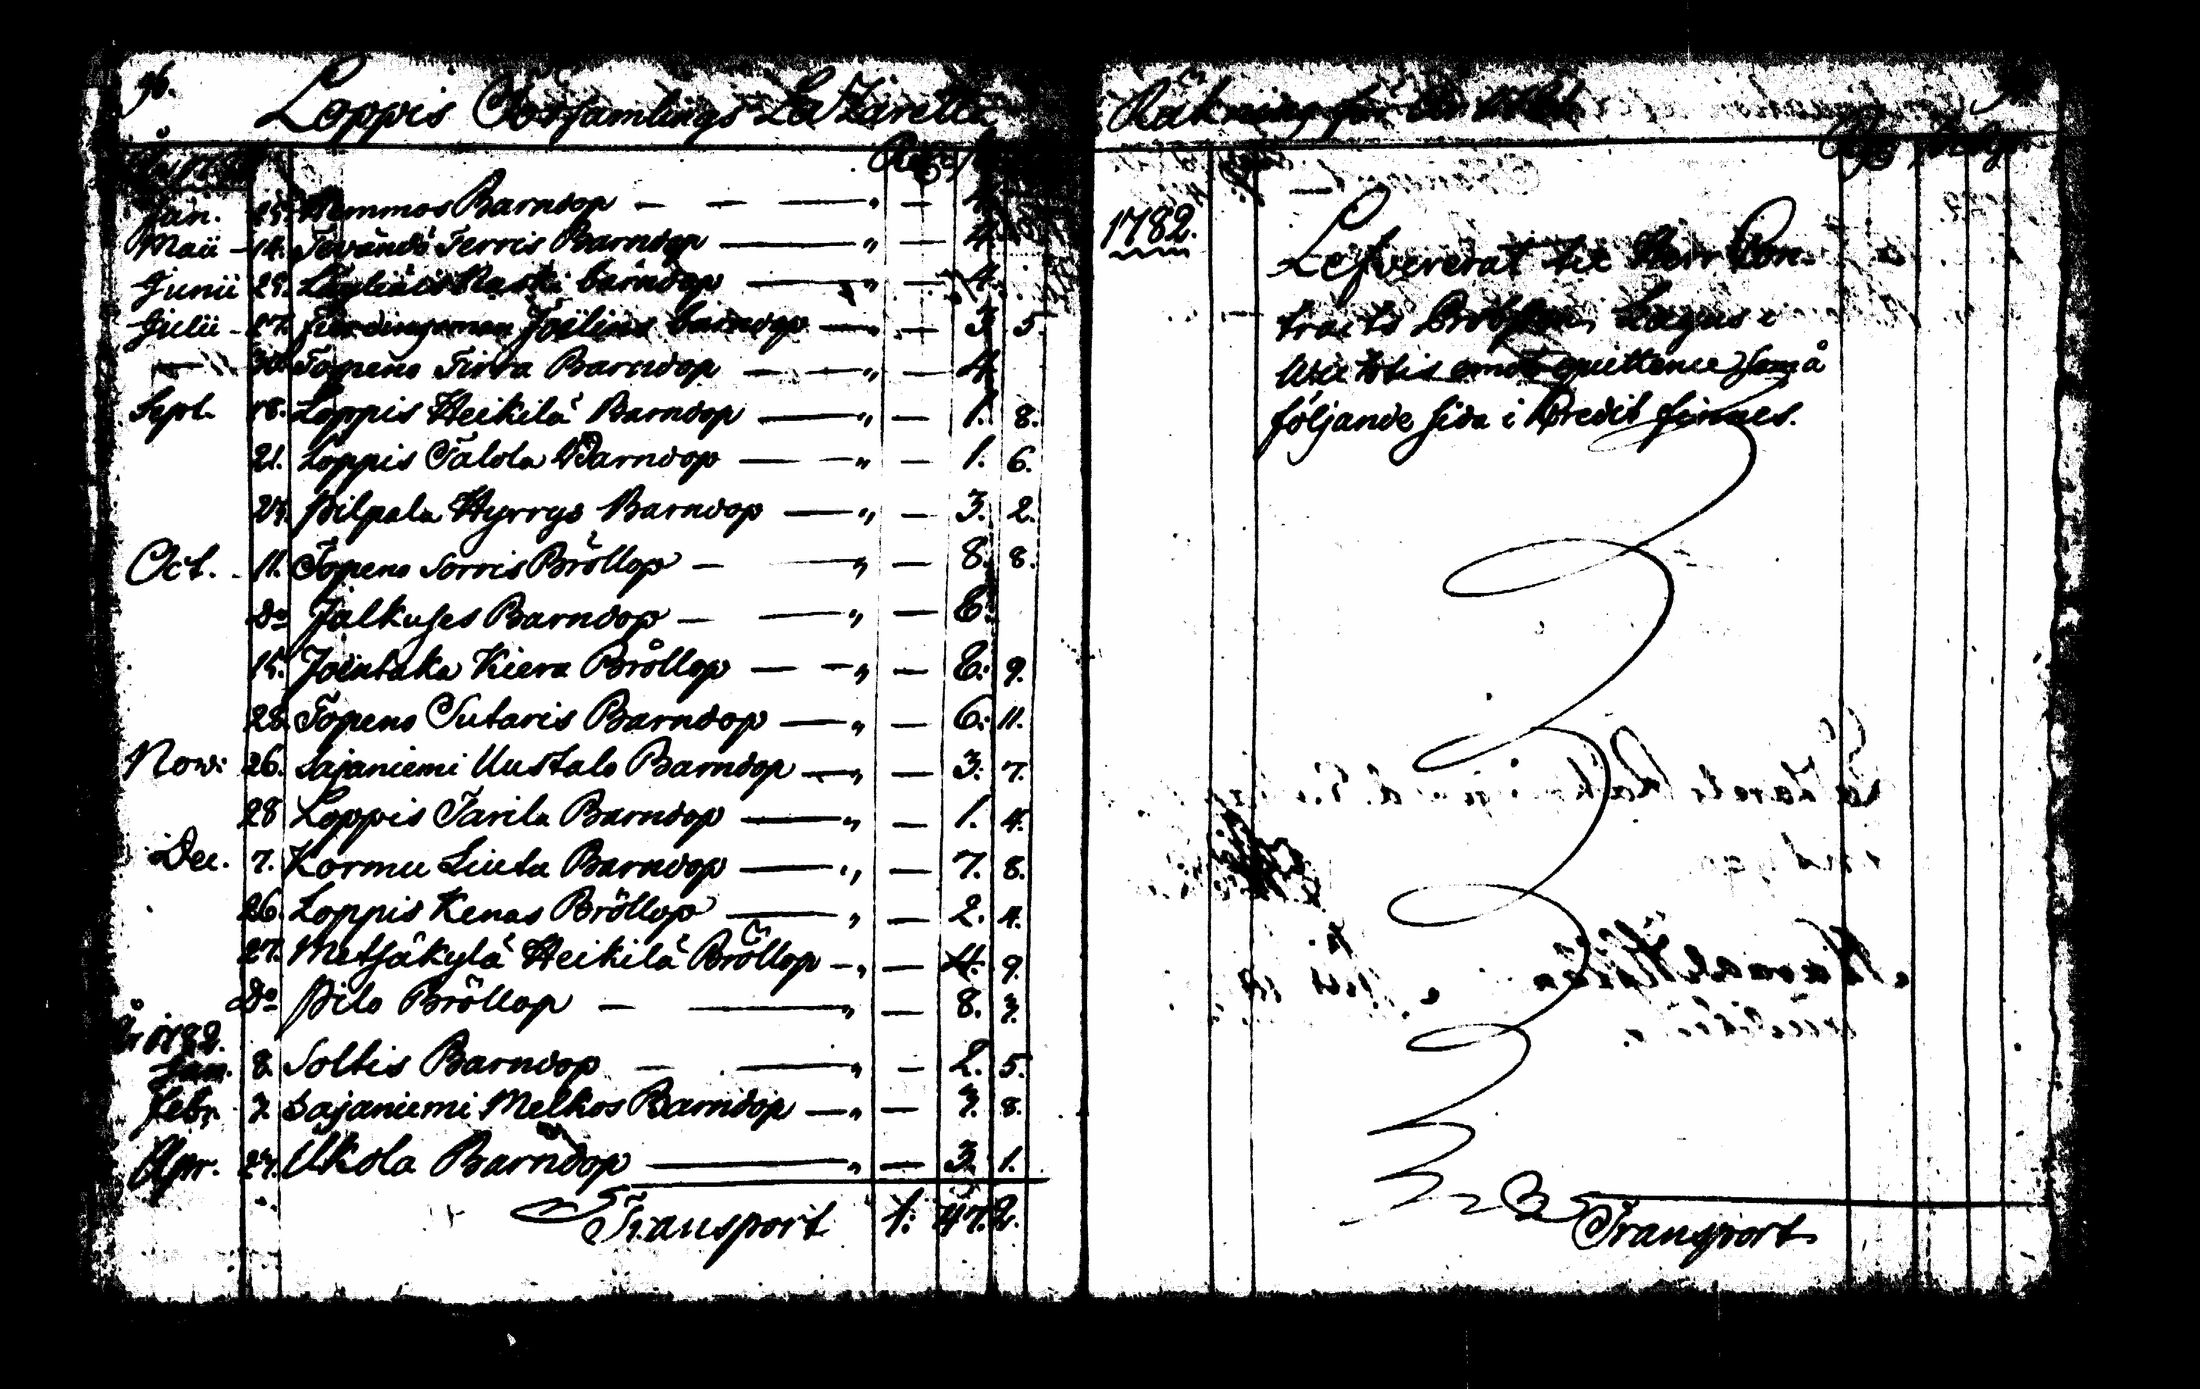 96.
Loppis Församlings LaZaretts
Jan. 25. Hemmos Barndop — — — " — 4.
Maii — 14. Tevändö Terris Barndop — " — 4.
Junii 29. Läyliäis Raski barndop — " — 4.
Julii — 27. barndop — " — 3. 5.
30. Topeno Tirra Barndop — — — " — 4.
Sept. 18. Loppis Heikilä Barndop — " — 1. 8.
21. Loppis Talola Barndop — — " — 1. 6.
29. Pilpala Hyrrys Barndop — " — 3. 2.
Oct. 11. Topeno Sorris Bröllop — — " — 8. 8.
Do Jalkuses Barndop — — " — 6.
15. Joentaka Kiera Bröllop — — " — 6. 9.
28. Topeno Sutaris Barndop — " — 6. 11.
Now: 26. Sajaniemi Uustalo Barndop — " — 3. 7.
28 Loppis Tarila Barndop — " — 1. 4.
Dec. 7. Kormu Liuta Barndop — " — 7. 8.
26. Loppis Kenas Bröllop — " — 2. 4.
27. Metsäkylä Heikilä Bröllop — " — 4. 9.
Do Pilo Bröllop — — " — 8. 3.
År 1782.
Jan. 8. Soltis Barndop — — " — 2. 5.
Febr. 3. Sajaniemi Melkos Barndop — " — 3. 8.
Apr. 27. Ukola Barndop — " — 3. 1.
Transport 1: 47. 2.
Räkning för År
1782.
Lefvererat til Herr Con-
tracts Probsten Lagus i
emot quittence som å
följande sida i Credit finnes.
Transport